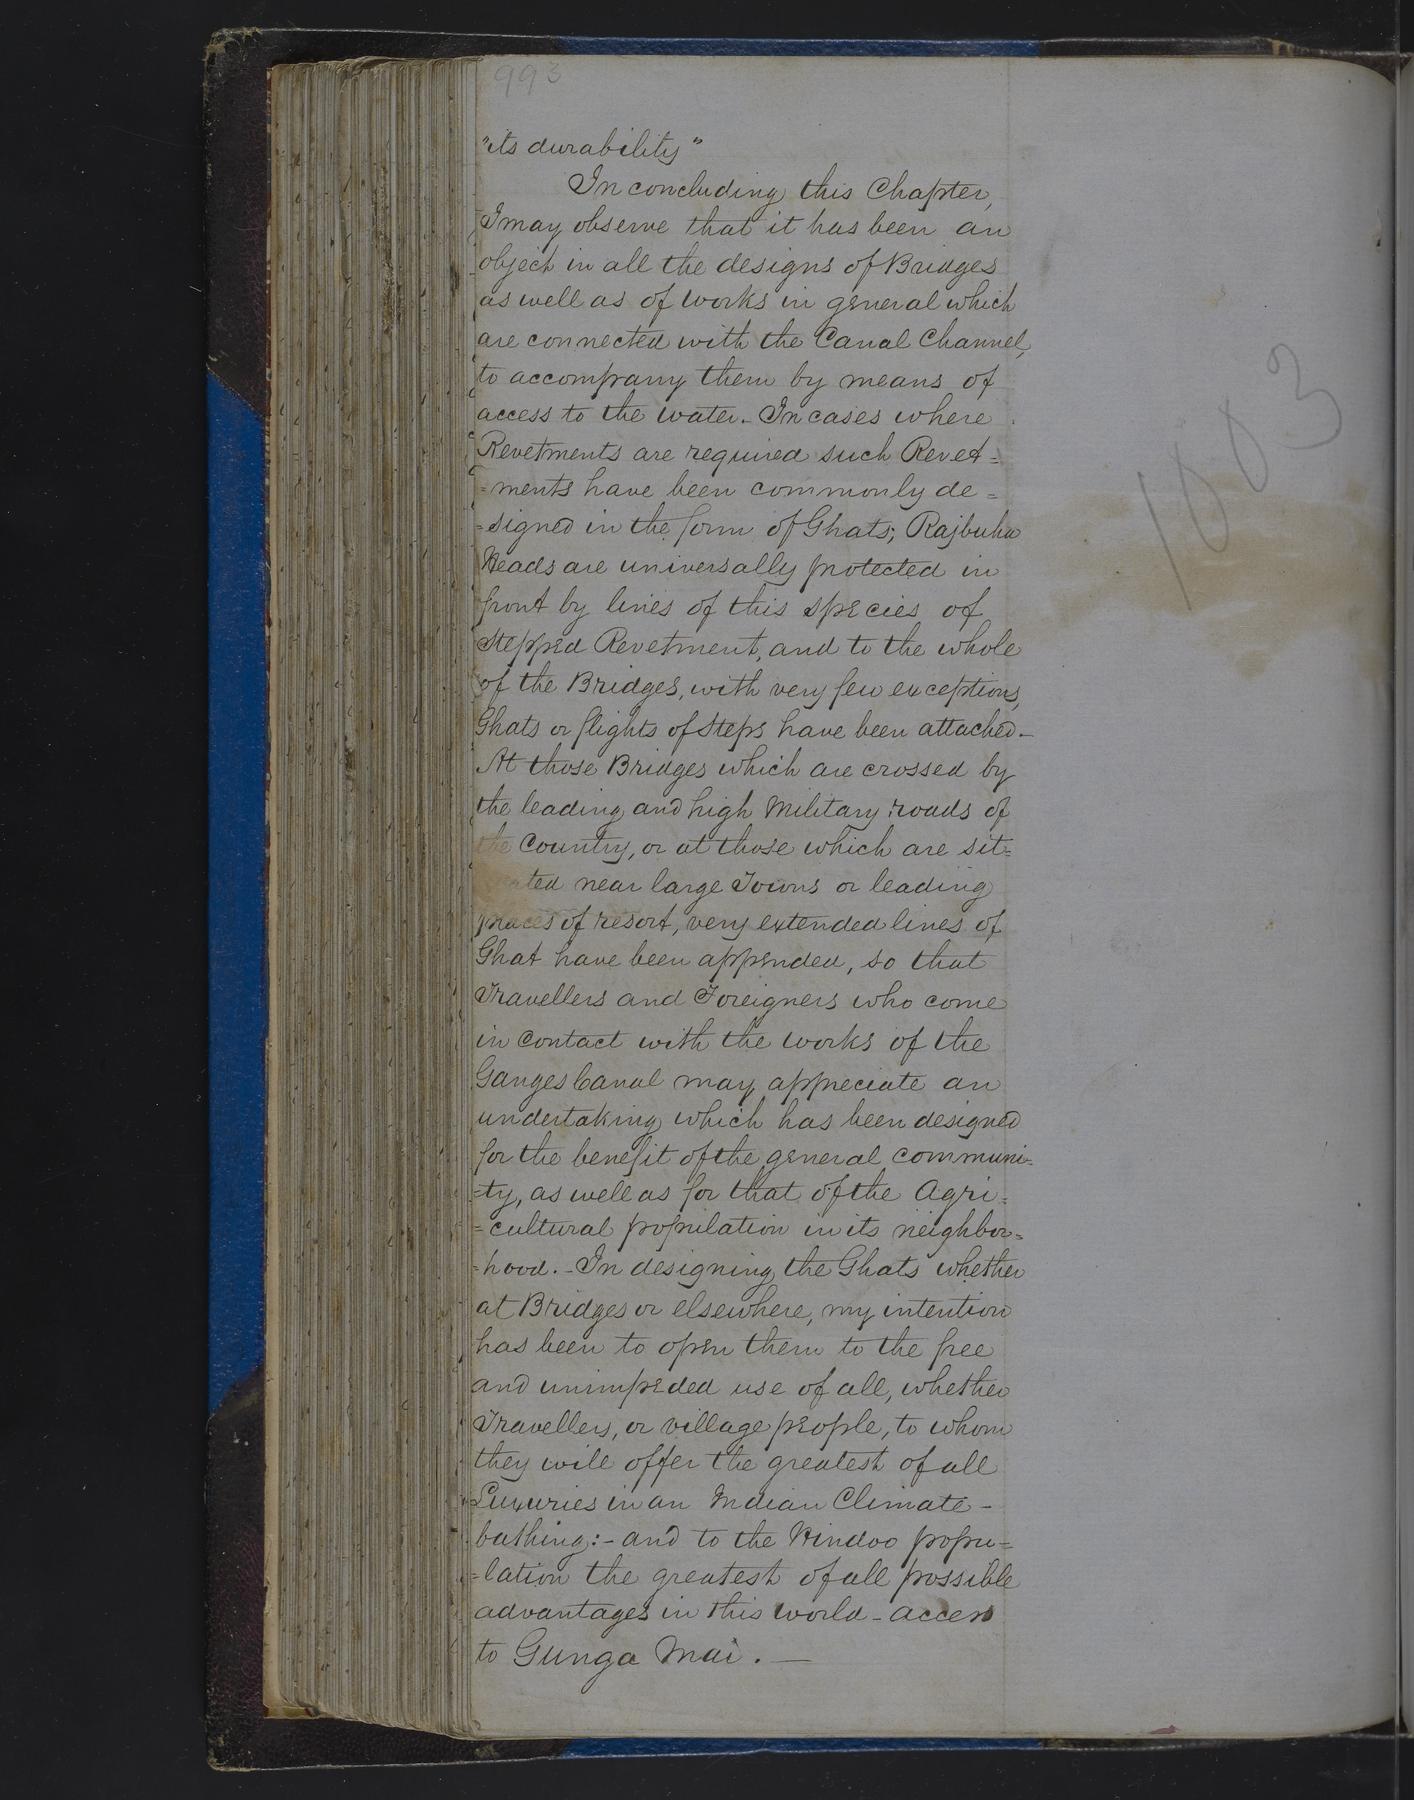 993
"its durability"
In concluding this Chapter,
I may observe that it has been an
object in all the designs of Bridges
as well as of works in general which
are connected with the Canal Channel,
to accompany them by means of
access to the water. - In cases where
Revetments are required such Revet=
=ments have been commonly de=
=signed in the form of Ghats; Rajbuha
Heads are universally protected in
front by lines of this species of
stepped Revetment, and to the whole
of the Bridges, with very few exceptions,
Ghats or flights of steps have been attached.-
At those Bridges which are crossed by
the leading and high Military roads of
the Country, or at those which are sit=
ated near large Towns or leading
places of resort, very extended lines of
Ghat have been appended, so that
Travellers and Foreigners who come
in contact with the works of the
Ganges Canal may appreciate an
undertaking which has been designed
for the benefit of the general communi=
=ty, as well as for that of the Agri=
=cultural population in its neighbor=
=hood. - In designing the Ghats whether
at Bridges or elsewhere, my intention
has been to open them to the free
and unimpeded use of all, whether
Travellers, or village people, to whom
they will offer the greatest of all
Luxuries in an Indian Climate -
bathing:- and to the Hindoo popu=
=lation the greatest of all possible
advantages in this world - access
to Gunga Mai. —
1003